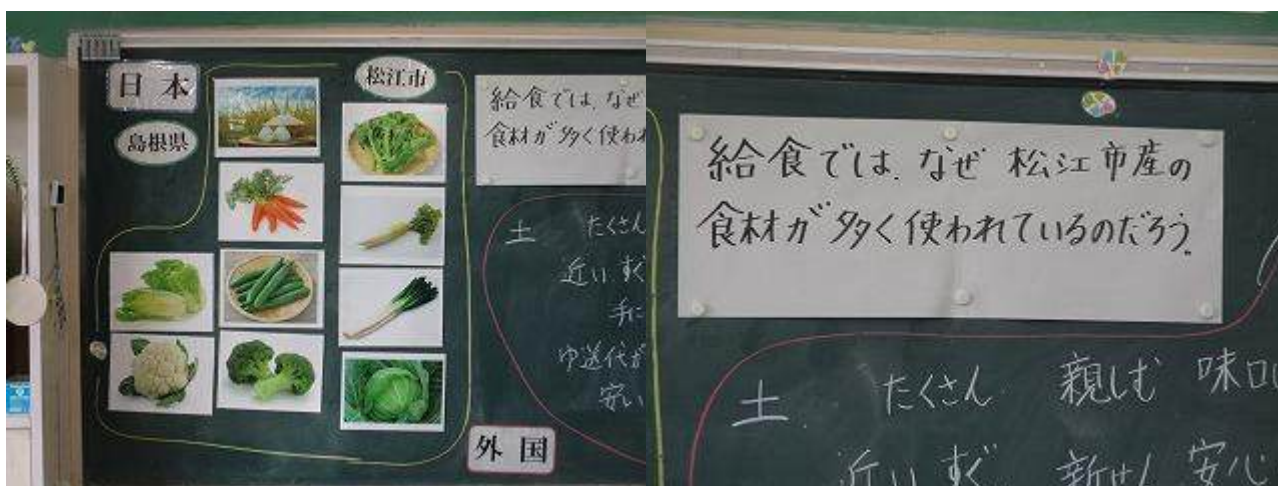 日本
松江市
島根県
給食では、なぜ
食材が多く使われ
土 たくさん
近い すぐ
手に
ゆ送代が
安い
外国
給食では、なぜ 松江市産の
食材が多く使われているのだろう。
土 たくさん 親しむ 味
近い すぐ 新せん 安心